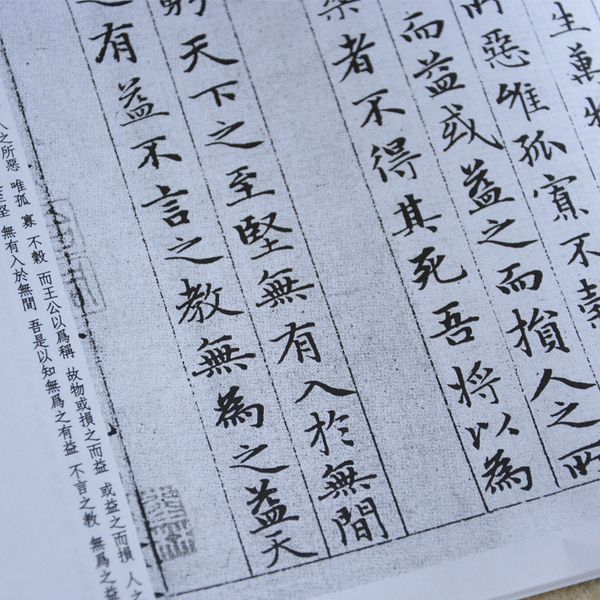 生萬物
所惡唯孤寡不
而益或益之而損人之所
梁者不得其死吾將以為
天下之至堅無有入於無間
之有益不言之教無為之益天
人之所惡 唯孤 寡 不穀 而王公以爲稱 故物或損之而益 或益之而損 人之
至堅 無有入於無間 吾是以知無爲之有益 不言之教 無爲之益